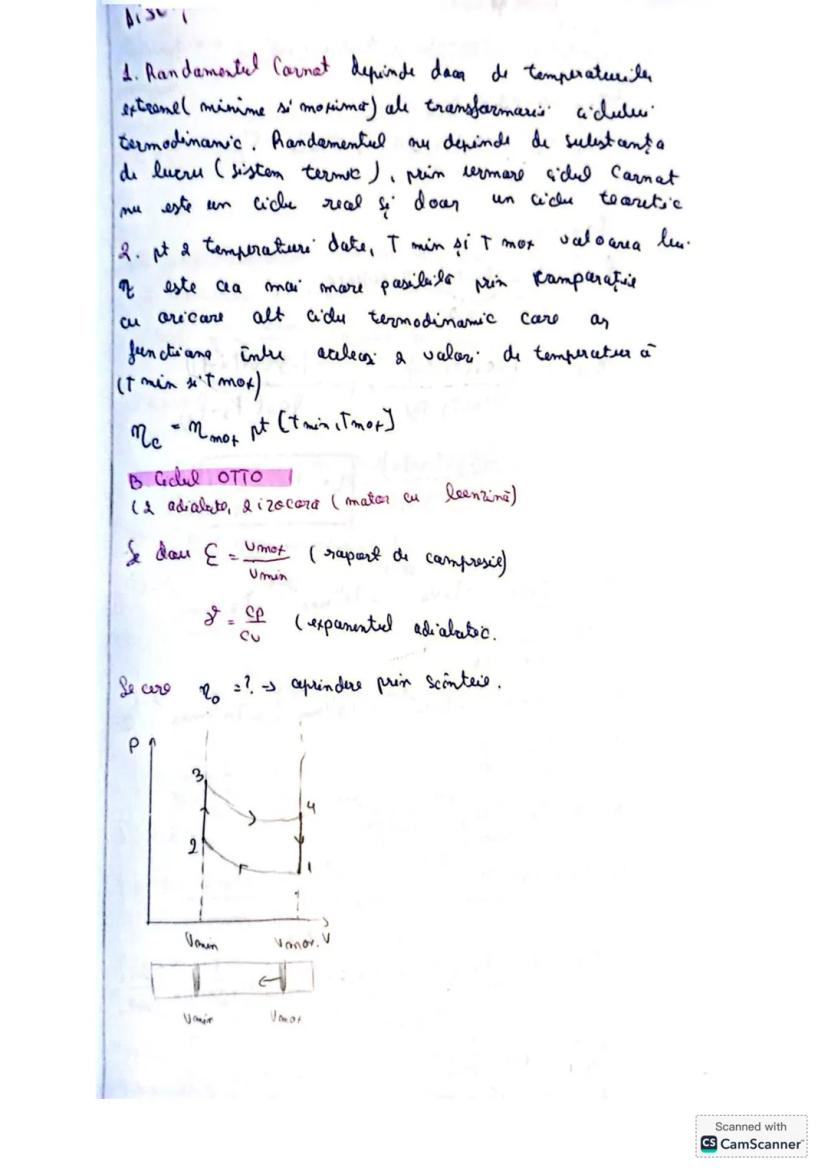 Disc:
1. Randamentul Carnot depinde doar de temperaturile
extreme( minime si maxime) ale transformarii ciclului
termodinamic. Randamentul nu depinde de substanța
de lucru (sistem termic), prin urmare ciclul Carnot
nu este un ciclu real și doar un ciclu teoretic
2. pt 2 temperaturi date, T min și T max valoarea lui
η este cea mai mare posibilă prin comparație
cu oricare alt ciclu termodinamic care ar
funcționa între aceleași 2 valori de temperatură
(T min si T max)
ηc = ηmax pt [Tmin, Tmax]
B Ciclul OTTO
(2 adiabate, 2 izocore (motor cu benzină)
Se dau ε = Vmax/Vmin (raport de compresie)
γ = Cp/Cv (exponentul adiabatic.
Se cere η0 =? → aprindere prin scânteie.
P
3
4
2
1
Vmin Vmax. V
Vmin Vmax
Scanned with
CS CamScanner